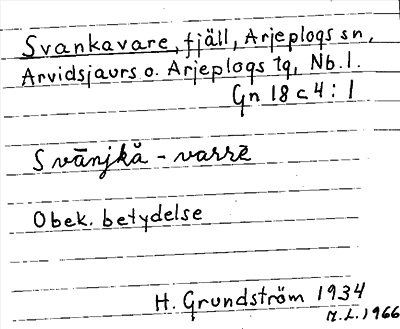 Svankavare, fjäll, Arjeplogs sn,
Arvidsjaurs o. Arjeplogs lq, Nb. l.
Gn 18 c 4 : 1
Svānjkå - varrē
Obek. betydelse
H. Grundström 1934
M.L. 1966